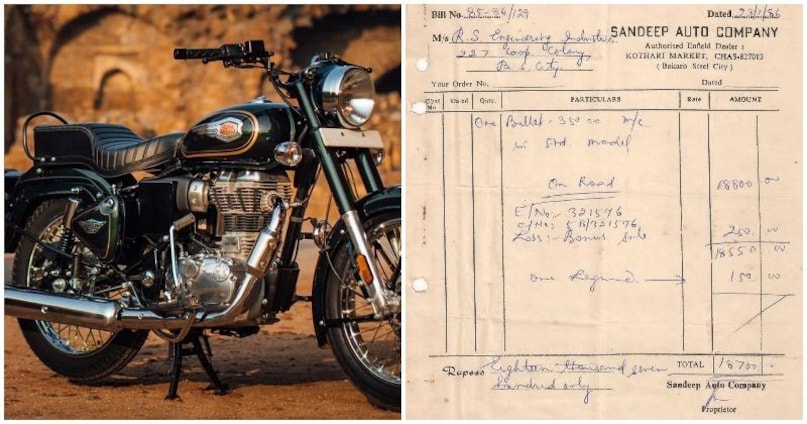 Bill No. 85-86/129
Dated 23/1/86
SANDEEP AUTO COMPANY
M/s R.S. Engineering Industries
Authorised Enfield Dealer :
227 Coop. Colony
KOTHARI MARKET, CHAS-827013
B. S. City.
( Bokaro Steel City )
Your Order No.
Dated
No Dated Qnty. PARTICULARS Rate AMOUNT
One Bullet - 350 cc m/c
in Std. model
On Road 18800 00
E/No:- 321576
C/No:- 5B/321576
Less :- Bonus 250. 00
18550 00
one Legguard 150 00
Rupees Eighteen thousand seven TOTAL 18700
hundred only
Sandeep Auto Company
Proprietor